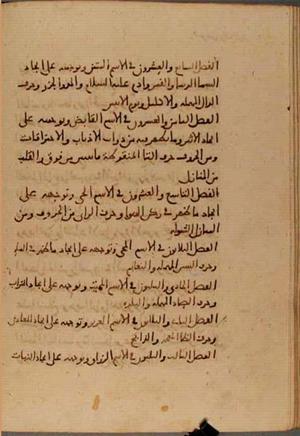 الفصل السابع والعشرون في الاسم المبين وتوجهه على ايجاد
السما الدنيا والقمر وادم عليه السلام والمد والجزر وحرف
الدال المهملة والاكليل ويوم الاثنين
الفصل الثامن والعشرون في الاسم القابض وتوجهه على
ايجاد الاثير وما يظهر فيه من ذوات الاذناب والاحتراقات
ومن الحروف حرف التا المنقوطة باثنتين من فوق والقلب
من المنازل
الفصل التاسع والعشرون في الاسم الحي وتوجهه على
ايجاد ما يظهر في ركن الهوا وحرف الزاي من الحروف ومن
المنازل الشولة
الفصل الثلاثون في الاسم المحي وتوجهه على ايجاد ما يظهر في الما
وحرف السين المهملة والنعايم
الفصل الحادي والثلاثون في الاسم المميت وتوجهه على ايجاد التراب
وحرف الصاد المهملة والبلدة
الفصل الثاني والثلاثون في الاسم العزيز وتوجهه على ايجاد المعادن
وحرف الظا المعجمة والذابح
الفصل الثالث والثلاثون في الاسم الرزاق وتوجهه على ايجاد النبات